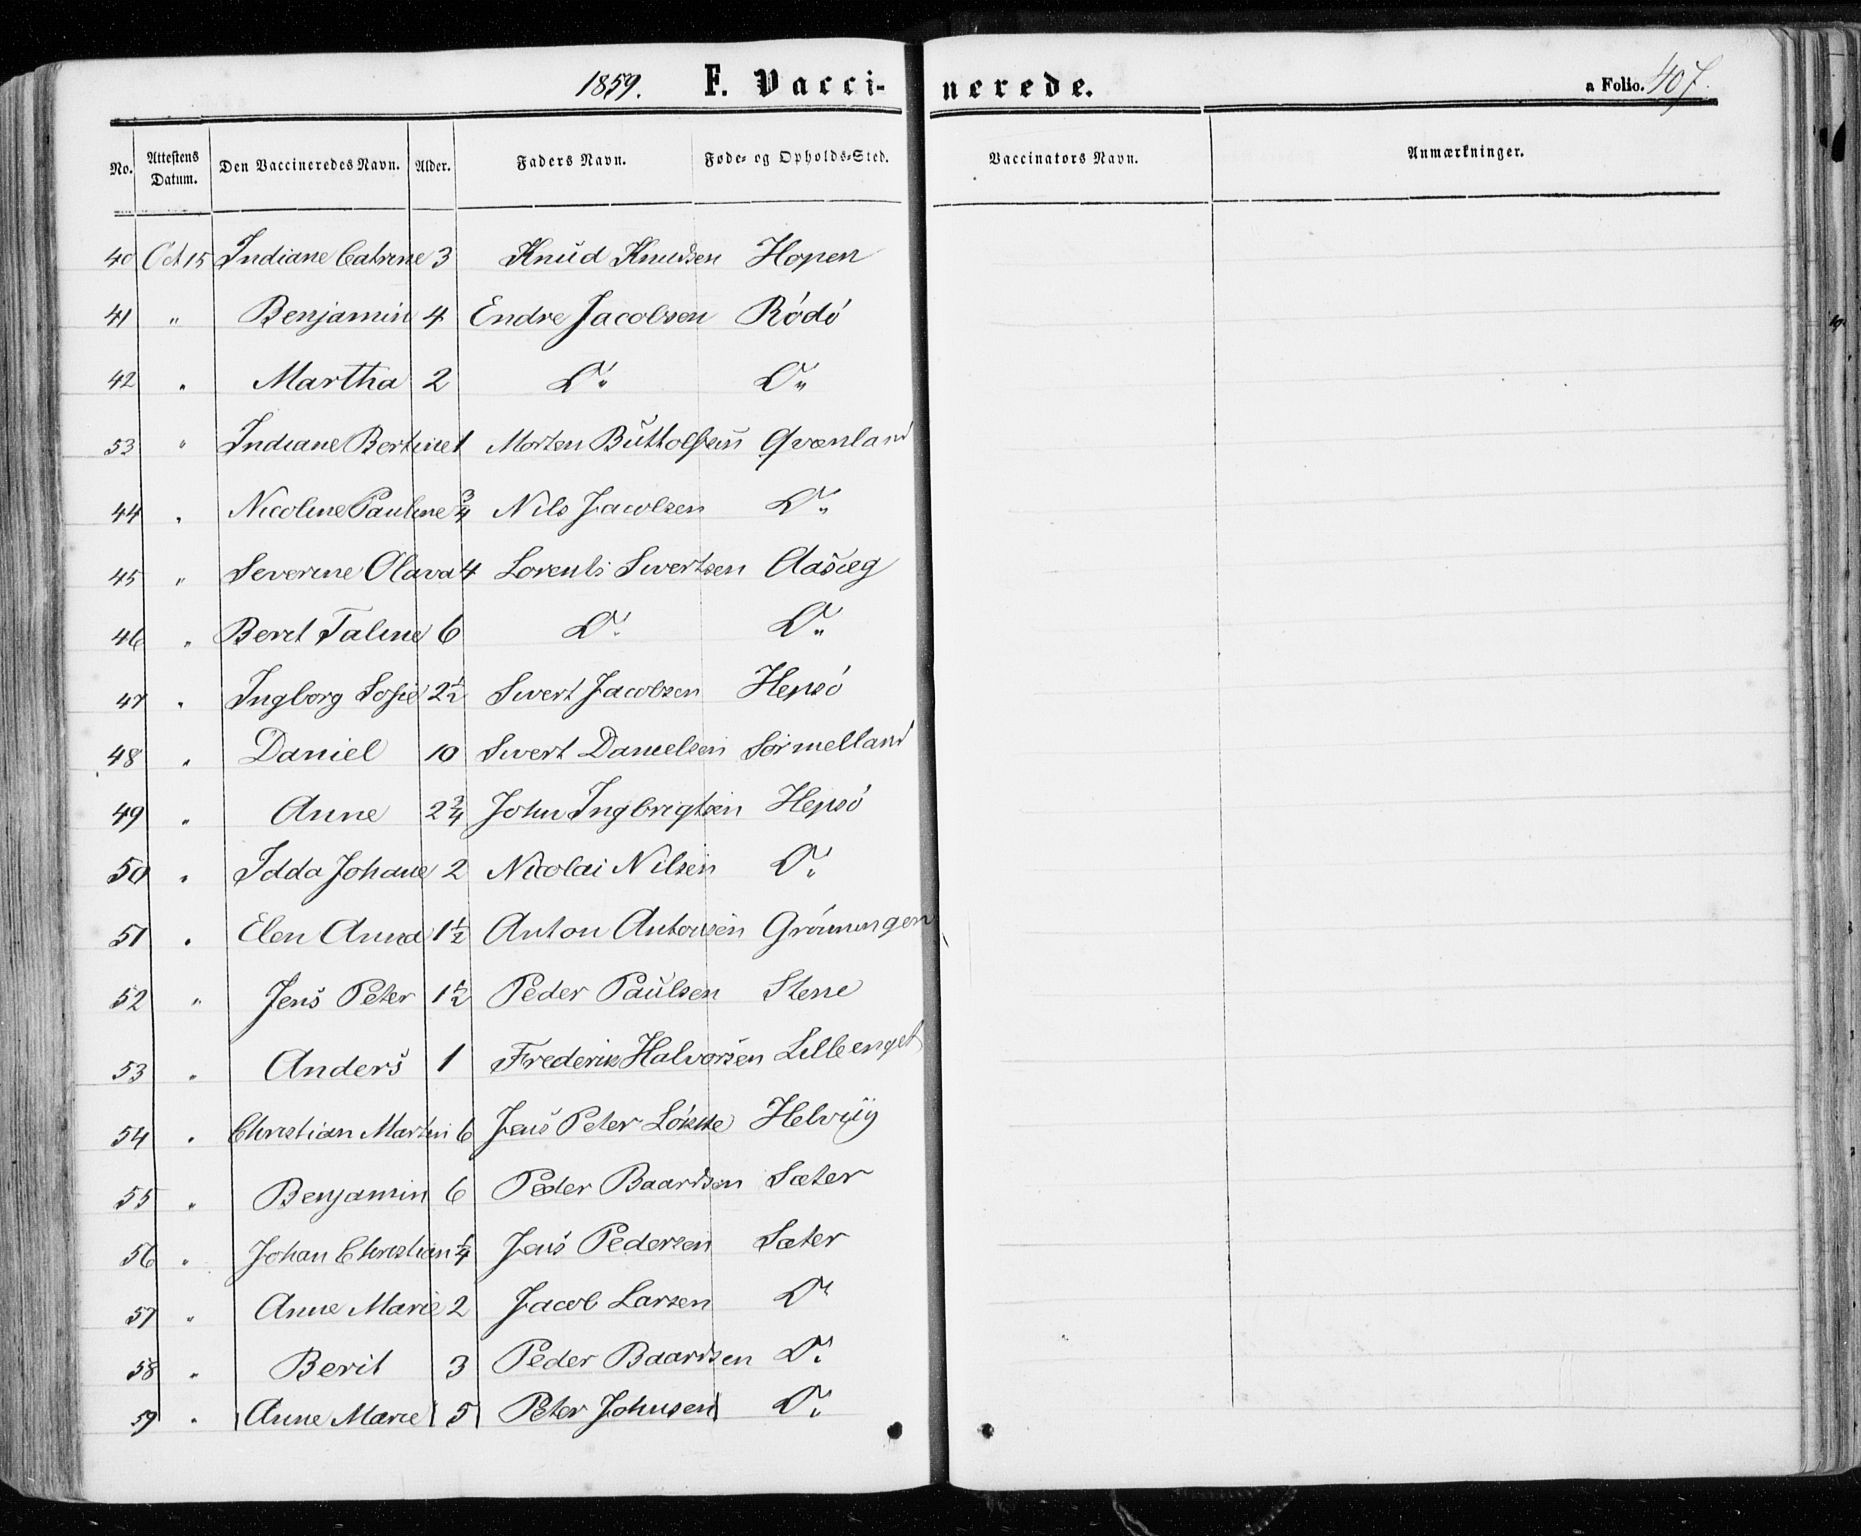 1859. F. Vacci- nerede. a Folio. 407.
No. Attestens Datum. Den Vaccineredes Navn. Alder. Faders Navn. Føde- og Opholds-Sted. Vaccinators Navn. Anmærkninger.
40 Oct 15 Indiane Catrine 3 Knud Knudsen Hopen
41 " Benjamin 4 Endre Jacobsen Rödö
42 " Martha 2 Do Do
53 " Indiane Bertine 1 Morten Buttolfsen Qvænland
44 " Nicoline Pauline 3/4 Nils Jacobsen Do
45 " Severine Olava 4 Lorents Sivertsen Aasæg
46 " Berit Taline 6 Do Do
47 " Ingborg Sofie 2 1/2 Sivert Jacobsen Hepsö
48 " Daniel 10 Sivert Danielsen Sörmelland
49 " Anne 2 3/4 John Ingbrigtsen Hepsö
50 " Idda Johane 2 Nicolai Nilsen Do
51 " Elen Anna 1 1/2 Anton Antonsen Gröningen
52 " Jens Peter 1 1/2 Peder Paulsen Stene
53 " Anders 1 Frederik Halvorsen Lilleenget
54 " Christian Martin 6 Jens Peter Lökke Helviig
55 " Benjamin 6 Peder Baardsen Sæter
56 " Johan Christian 1/4 Jens Pedersen Sæter
57 " Anne Marie 2 Jacob Larsen Do
58 " Berit 3 Peder Baardsen Do
59 " Anne Marie 5 Peter Johnsen Do